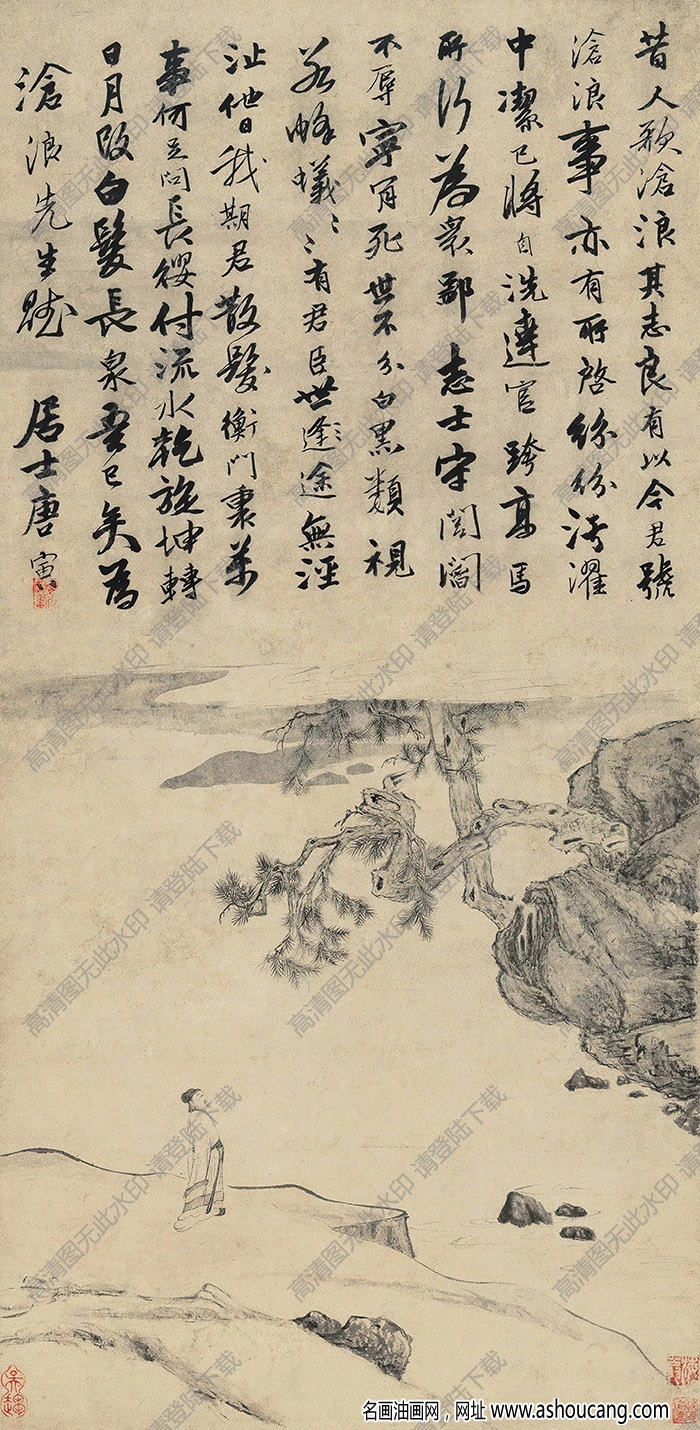 昔人歌滄浪其志良有以今君號
滄浪事亦有所啓紛紛濤濯
中潔已將自洗達官跨高馬
所行為衆鄙志士守閭閻
不辱寧肯死世不分白黑類視
若蜂蟻蟻有君臣世途途無涇
沚借我期君散髮衡門裏萬
事何足問長纓付流水乾旋坤轉
日月改白髮長泉吾已矣為
滄浪先生賦 居士唐寅
名画油画网，网址 www.ashoucang.com
高清图无此水印 请登陆下载